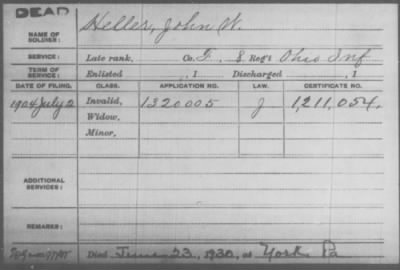 DEAD
NAME OF SOLDIER: Heller, John W.
SERVICE: Late rank, Co. F, 8 Reg't Ohio Inf
TERM OF SERVICE: Enlisted , 1 Discharged , 1
DATE OF FILING. CLASS. APPLICATION NO. LAW. CERTIFICATE NO.
1904 July 2 Invalid, 1320005 J 1,211,054.
Widow,
Minor,
ADDITIONAL SERVICES:
REMARKS:
Died June 23, 1930, at York Pa